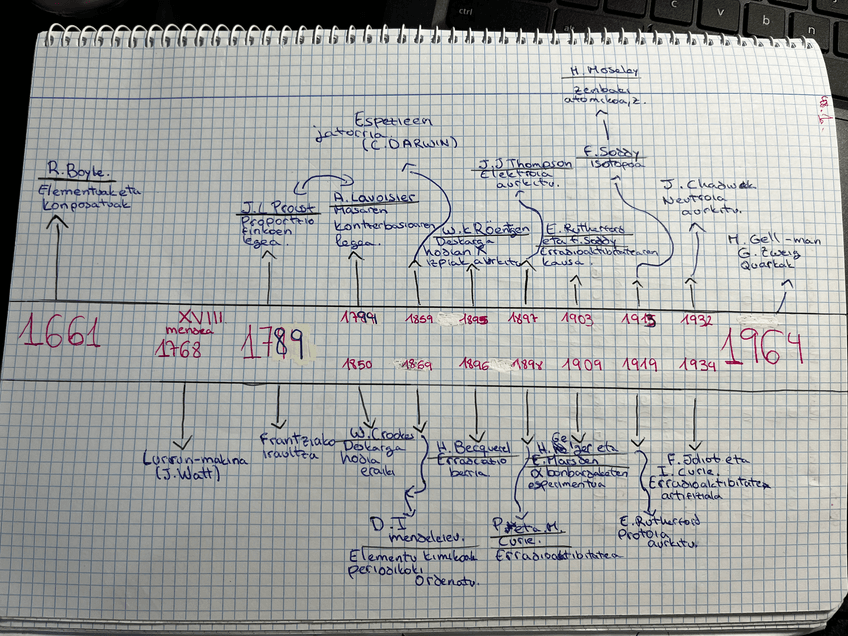 H. Moseley
Zenbaki
atomikoa, z.
Espezieen
jatorria.
(C. DARWIN)
F. Soddy
isotopoa
J.J Thompson
Elektroia
aurkitu.
R. Boyle.
Elementuak eta
konposatuak
J. Chadwick
Neutroia
aurkitu.
J.L Proust
Proportzio
finkoen
legea.
A. Lavoisier
Masaren
kontserbasioaren
legea.
W.k Röentgen
Deskarga
hodian R
izpiak aurkitu
E. Rutherford
eta F. Soddy
Erradioaktibitatearen
kausa
M. Gell-man
G. Zweig
Quarkak
1661
XVIII
mendea
1768
1789
1789
1859
1895
1897
1903
1913
1932
1964
1850
1869
1896
1898
1909
1919
1934
Lurrun-makina
(J. Watt)
Frantziako
iraultza
W. Crookes
Deskarga
hodia
eraiki
H. Becquerel
Erradiazio
berria
H. Geiger eta
E. Marsden
α bonbardaketen
esperimentua
F. Joliot eta
I. Curie.
Erradioaktibitatea
artifiziala
D.I
mendeleiev.
Elementu kimikoak
periodikoki
Ordenatu.
P. eta M.
Curie.
Erradioaktibitatea
E. Rutherford
Protoia
aurkitu